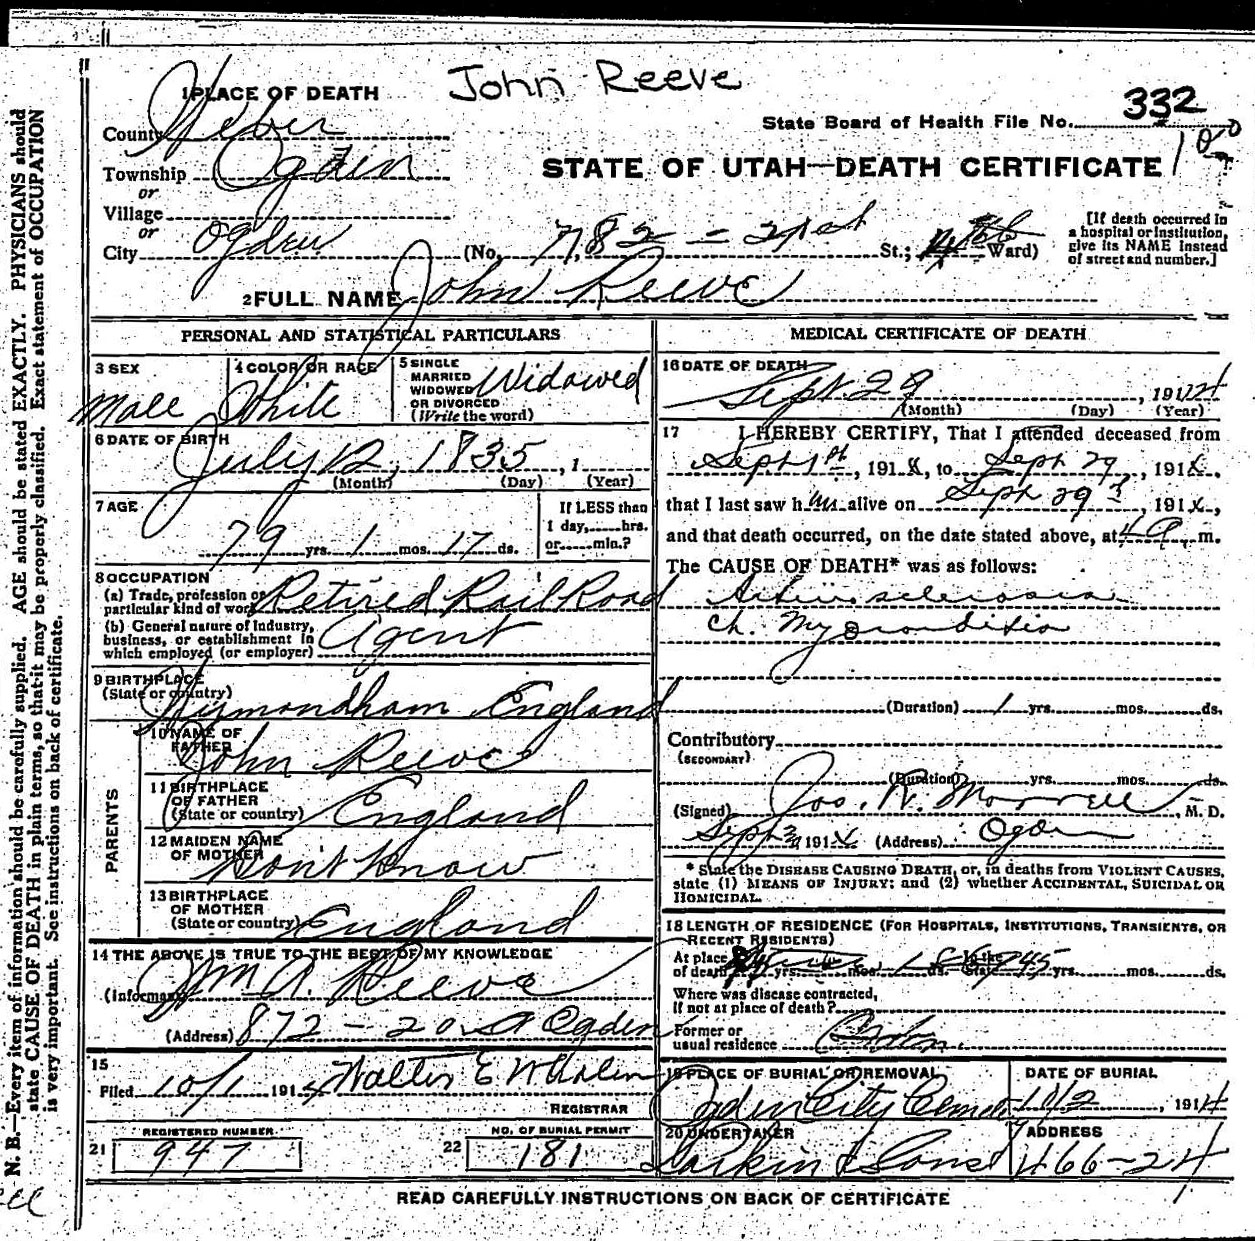 John Reeve
1 PLACE OF DEATH
County Weber
State Board of Health File No. 332
Township Ogden
STATE OF UTAH—DEATH CERTIFICATE
or
Village
or
City Ogden (No. 782 - 21st St.; 4th Ward)
[If death occurred in
a hospital or institution,
give its NAME instead
of street and number.]
2 FULL NAME John Reeve
PERSONAL AND STATISTICAL PARTICULARS
3 SEX
Male
4 COLOR OR RACE
White
5 SINGLE
MARRIED
WIDOWED
OR DIVORCED
(Write the word)
Widowed
6 DATE OF BIRTH
July 12, 1835, 1
(Month) (Day) (Year)
7 AGE
79 yrs. 1 mos. 17 ds.
If LESS than
1 day, hrs.
or min.?
8 OCCUPATION
(a) Trade, profession or
particular kind of work Retired Rail Road
(b) General nature of industry,
business, or establishment in
which employed (or employer) Agent
9 BIRTHPLACE
(State or country)
Wymondham England
PARENTS
10 NAME OF
FATHER
John Reeve
11 BIRTHPLACE
OF FATHER
(State or country) England
12 MAIDEN NAME
OF MOTHER
Don't know
13 BIRTHPLACE
OF MOTHER
(State or country) England
14 THE ABOVE IS TRUE TO THE BEST OF MY KNOWLEDGE
(Informant) Wm A. Reeve
(Address) 872 - 20 st Ogden
15
Filed 10/1 1914 Walter E Whalen
REGISTRAR
REGISTERED NUMBER
21 947
NO. OF BURIAL PERMIT
22 181
MEDICAL CERTIFICATE OF DEATH
16 DATE OF DEATH
Sept. 29, 1914
(Month) (Day) (Year)
17 I HEREBY CERTIFY, That I attended deceased from
Sept 1st, 191 4, to Sept 29, 191 4,
that I last saw him alive on Sept 29, 191 4,
and that death occurred, on the date stated above, at m.
The CAUSE OF DEATH* was as follows:
Arteriosclerosis
Ch. Myocarditis
(Duration) 1 yrs. mos. ds.
Contributory
(SECONDARY)
(Duration) yrs. mos. ds.
(Signed) Jos. R. Morrell, M. D.
Sept 191 4 (Address) Ogden
* State the DISEASE CAUSING DEATH, or, in deaths from VIOLENT CAUSES,
state (1) MEANS OF INJURY; and (2) whether ACCIDENTAL, SUICIDAL OR
HOMICIDAL.
18 LENGTH OF RESIDENCE (FOR HOSPITALS, INSTITUTIONS, TRANSIENTS, OR
RECENT RESIDENTS)
At place
of death yrs. mos. ds. In the State 45 yrs. mos. ds.
Where was disease contracted,
if not at place of death?
Former or
usual residence
19 PLACE OF BURIAL OR REMOVAL
Ogden City Cemet
DATE OF BURIAL
10/2, 1914
20 UNDERTAKER
Larkin & Sons
ADDRESS
466-24
READ CAREFULLY INSTRUCTIONS ON BACK OF CERTIFICATE
N. B.—Every item of information should be carefully supplied. AGE should be stated EXACTLY. PHYSICIANS should
state CAUSE OF DEATH in plain terms, so that it may be properly classified. Exact statement of OCCUPATION
is very important. See instructions on back of certificate.